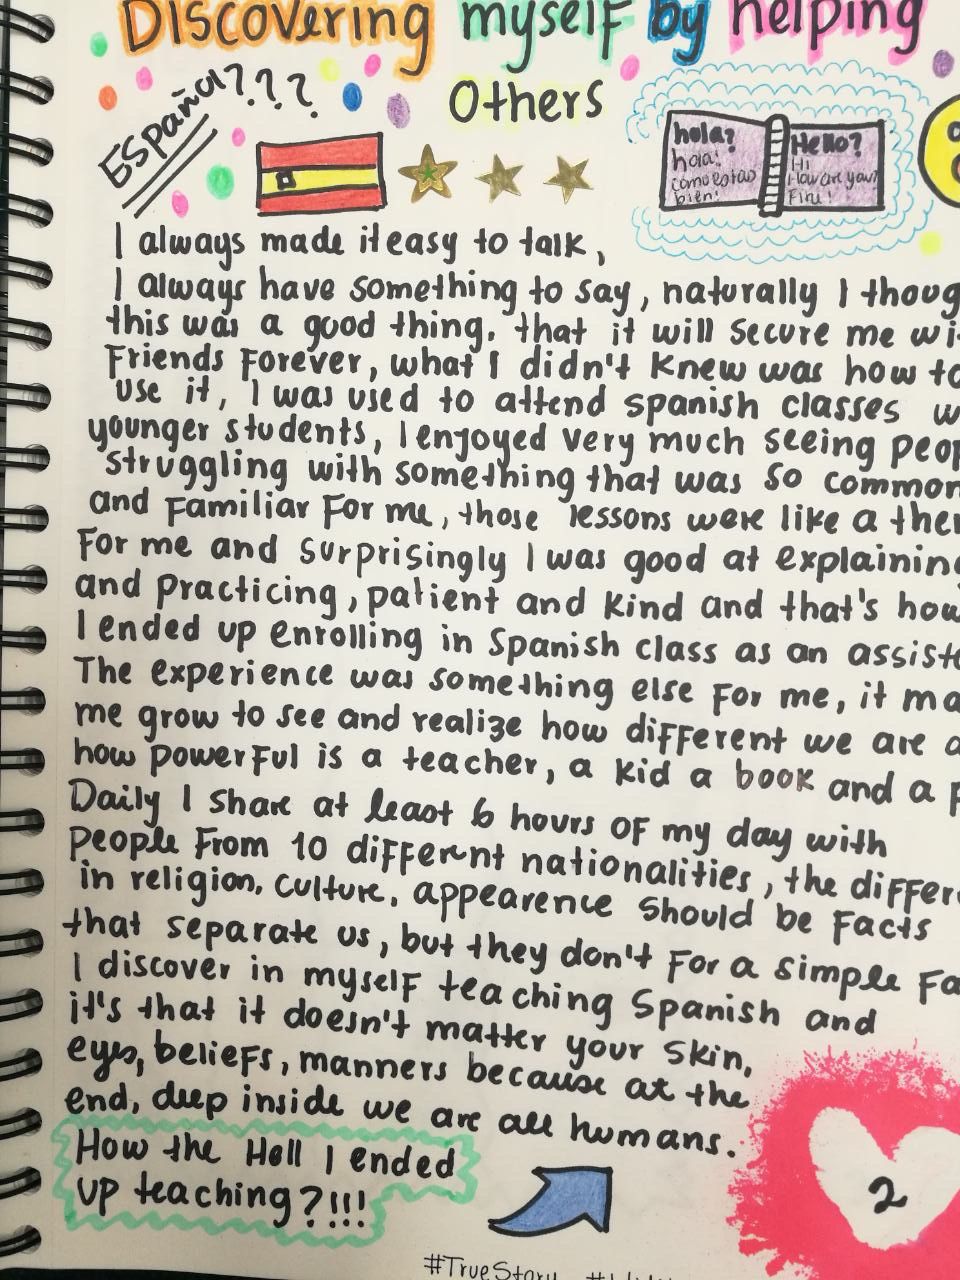 Discovering myself by helping
Others
Español???
hola?
hola!
como estas
bien!
Hello?
Hi
How are you?
Fine!
I always made it easy to talk,
I always have something to say, naturally I thoug
this was a good thing. that it will secure me wi
Friends Forever, what I didn't knew was how to
use it, I was used to attend spanish classes w
younger students, I enjoyed very much seeing peop
struggling with something that was so common
and Familiar For me, those lessons were like a ther
For me and surprisingly I was good at explaining
and practicing, patient and kind and that's how
I ended up enrolling in Spanish class as an assist
The experience was something else For me, it ma
me grow to see and realize how different we are a
how powerful is a teacher, a kid a book and a p
Daily I share at least 6 hours of my day with
people From 10 different nationalities, the differ
in religion. culture. appearence should be Facts
that separate us, but they don't For a simple Fa
I discover in myself teaching Spanish and
it's that it doesn't matter your skin,
eyes, beliefs, manners because at the
end, deep inside we are all humans.
How the Hell I ended
up teaching?!!!
2
#TrueStory